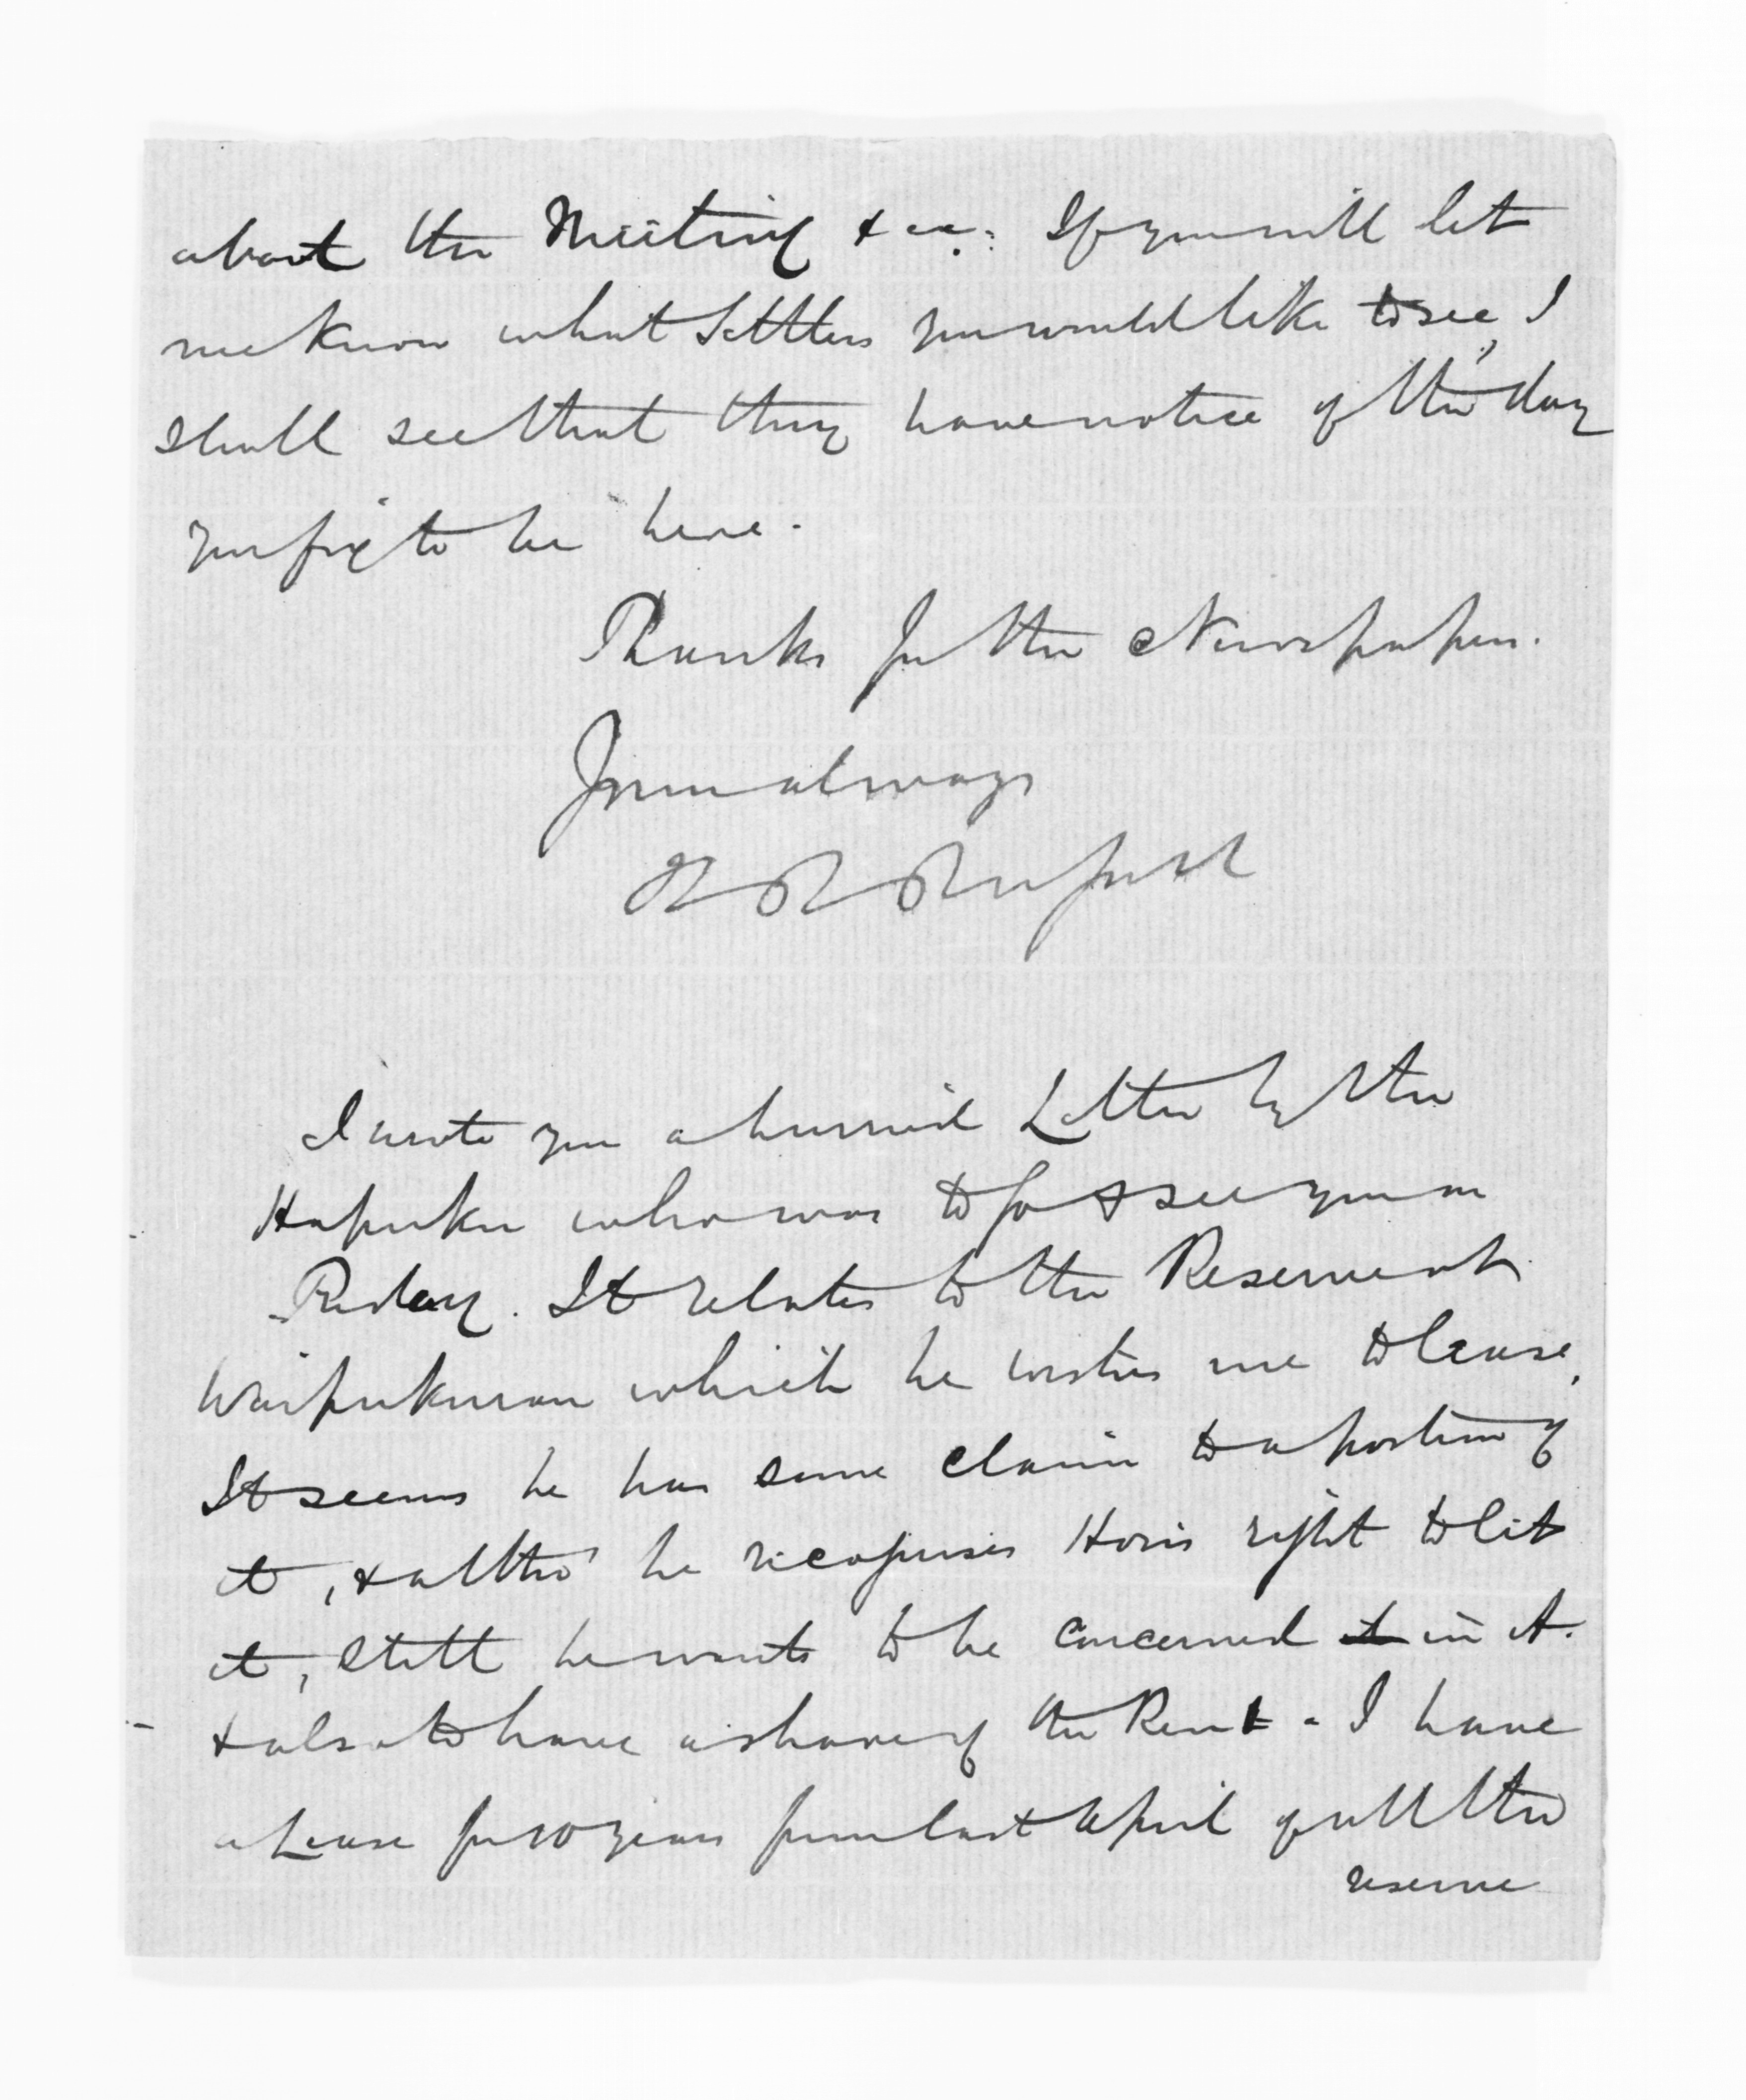 about the Meeting &c.: If you will let
me know what Settlers you would like to see, I
shall see that they have notice of the day
you fix to be here.
Thanks for the Newspapers.
Yours always
H R Russell
I wrote you a hurried Letter by the
Hapuku who was to go & see you on
Friday. It relates to the Reserve at
Waipukurau which he wishes me to lease.
It seems he has some claim to a portion of
it, & altho' he recognises Horis right to let
it, still he wants to be concerned it in it.
& also to have a share of the Rent - I have
a Lease for 10 years from last April of all the
reserve